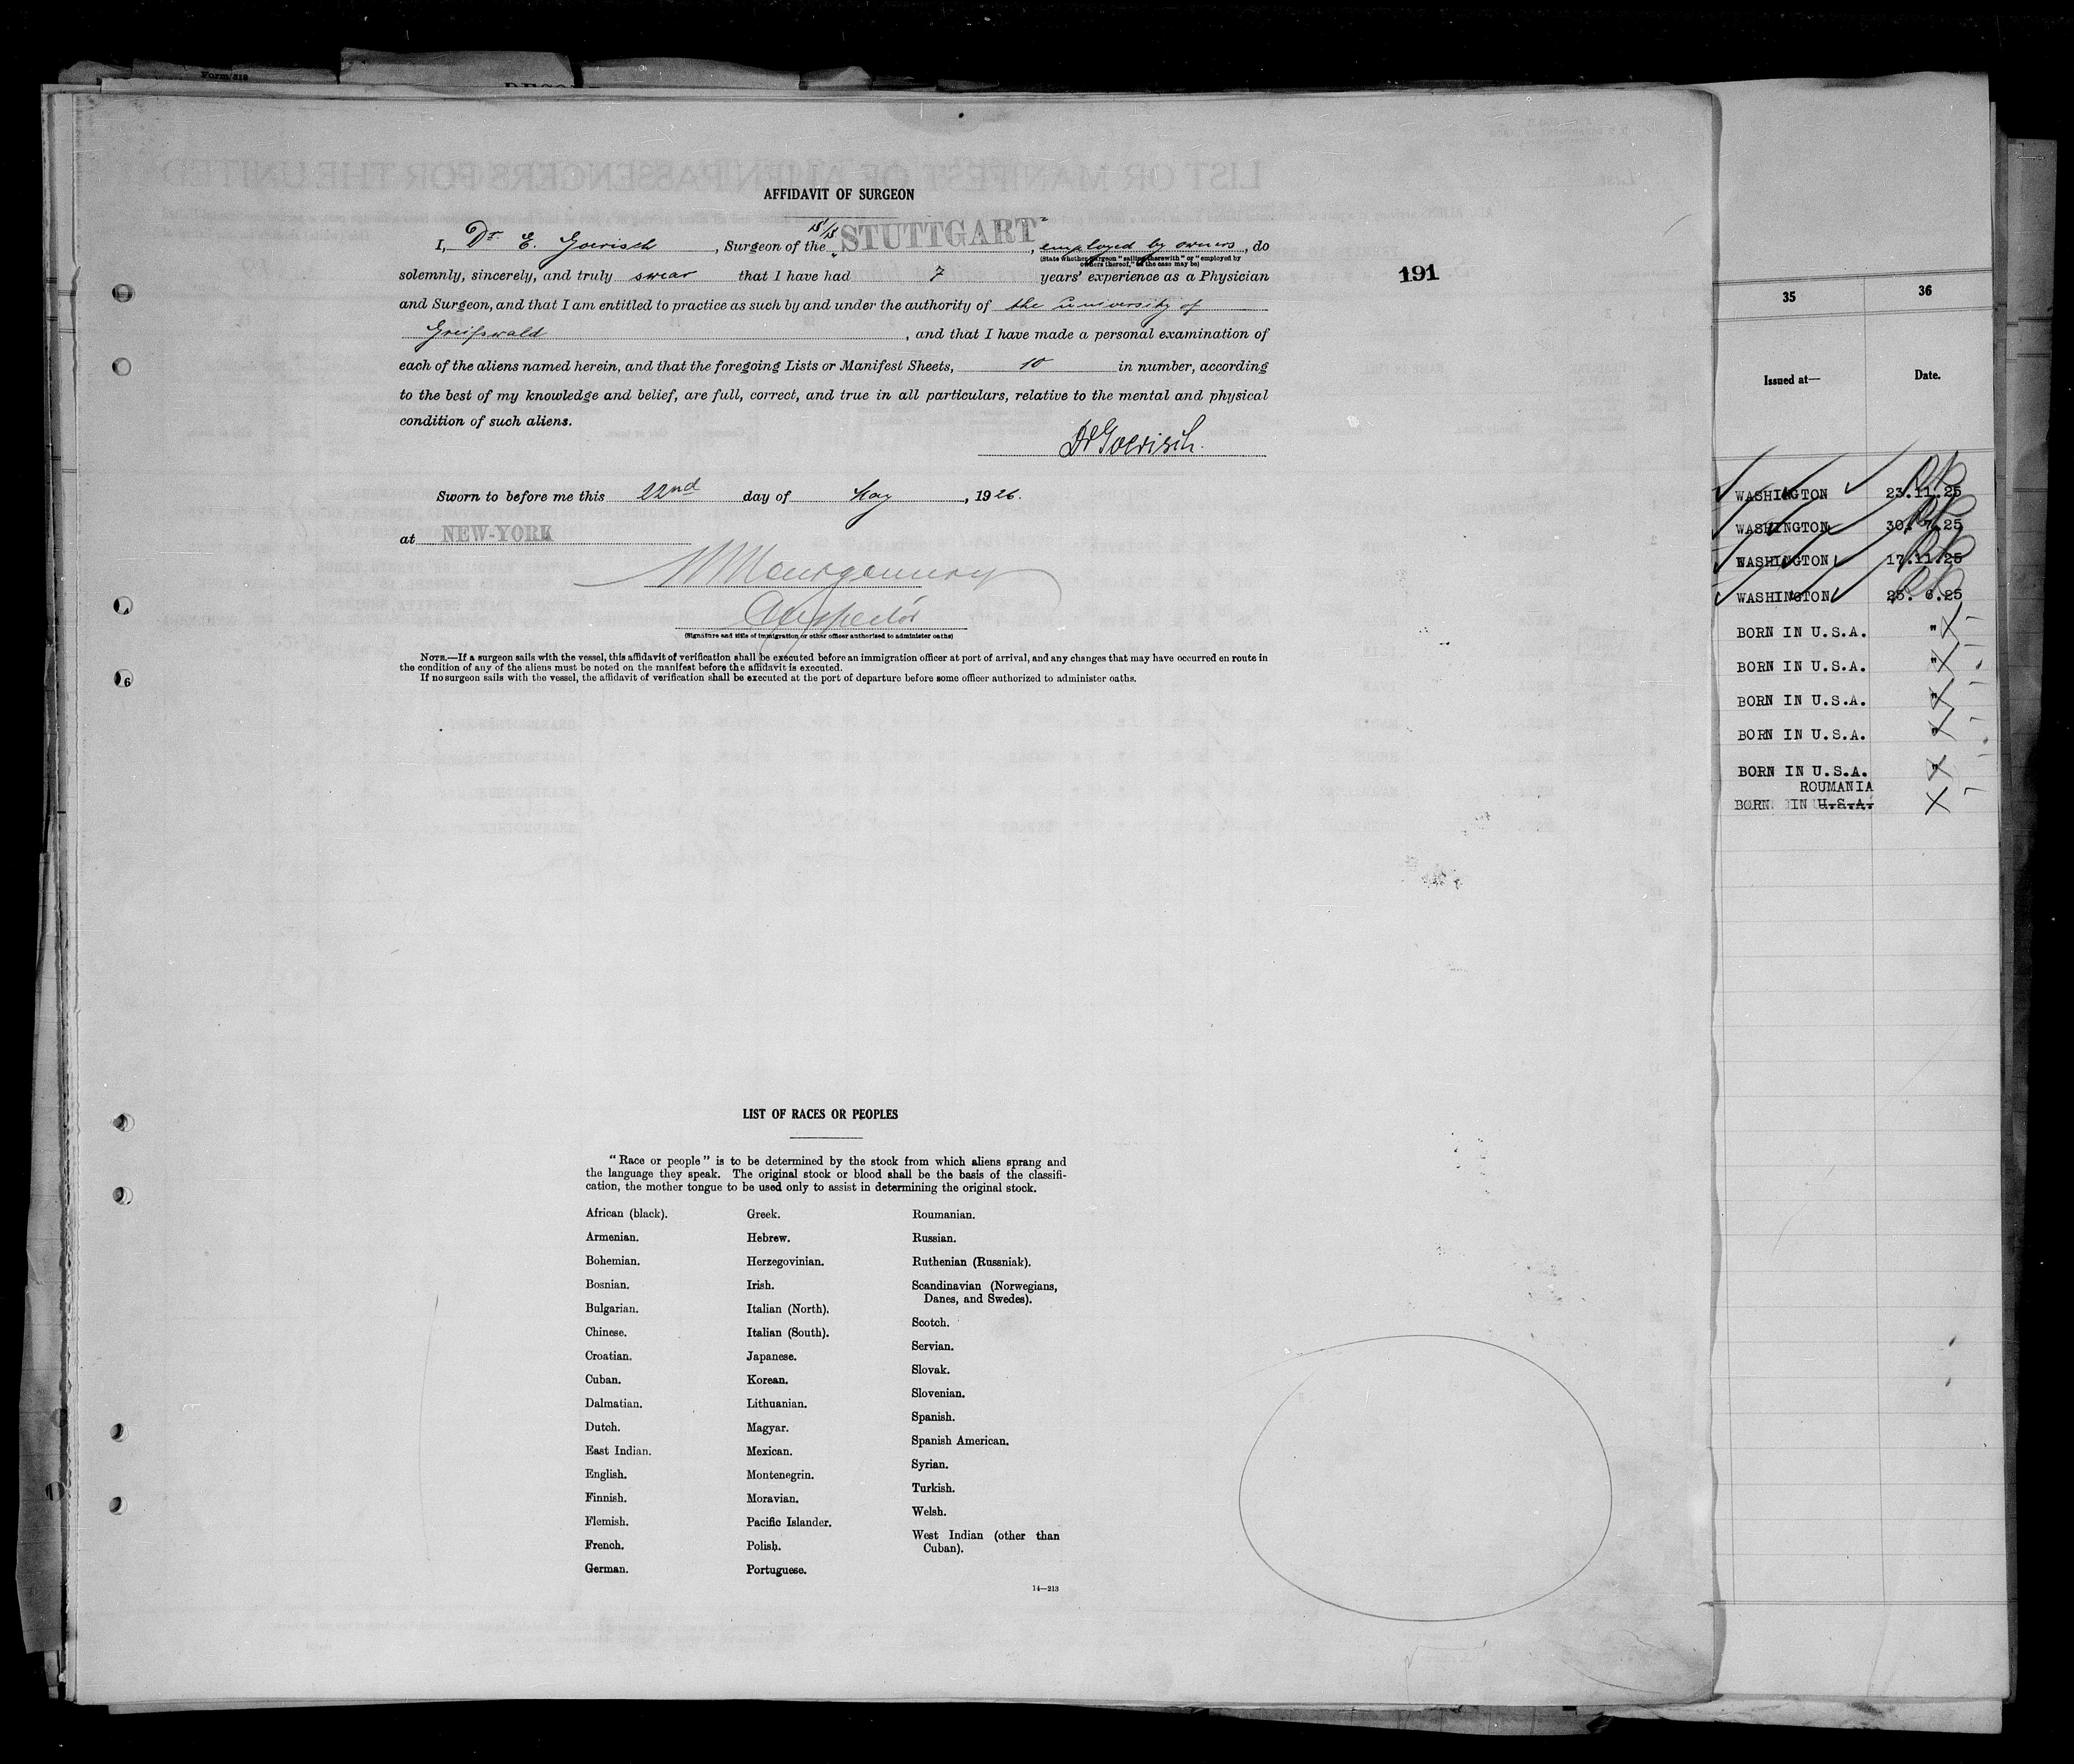 Form 818
AFFIDAVIT OF SURGEON
I, Dr. E. Goerisch, Surgeon of the S/S "STUTTGART", employed by owners, do
(State whether surgeon "sailing therewith" or "employed by
owners thereof," as the case may be)
solemnly, sincerely, and truly swear that I have had 7 years' experience as a Physician
and Surgeon, and that I am entitled to practice as such by and under the authority of the university of
Greifswald, and that I have made a personal examination of
each of the aliens named herein, and that the foregoing Lists or Manifest Sheets, 10 in number, according
to the best of my knowledge and belief, are full, correct, and true in all particulars, relative to the mental and physical
condition of such aliens.
Dr Goerisch.
Sworn to before me this 22nd day of May, 1926.
at NEW-YORK
Montgomery
Inspector
(Signature and title of immigration or other officer authorized to administer oaths)
NOTE.—If a surgeon sails with the vessel, this affidavit of verification shall be executed before an immigration officer at port of arrival, and any changes that may have occurred en route in
the condition of any of the aliens must be noted on the manifest before the affidavit is executed.
If no surgeon sails with the vessel, the affidavit of verification shall be executed at the port of departure before some officer authorized to administer oaths.
191
LIST OF RACES OR PEOPLES
"Race or people" is to be determined by the stock from which aliens sprang and
the language they speak. The original stock or blood shall be the basis of the classifi-
cation, the mother tongue to be used only to assist in determining the original stock.
African (black).
Armenian.
Bohemian.
Bosnian.
Bulgarian.
Chinese.
Croatian.
Cuban.
Dalmatian.
Dutch.
East Indian.
English.
Finnish.
Flemish.
French.
German.
Greek.
Hebrew.
Herzegovinian.
Irish.
Italian (North).
Italian (South).
Japanese.
Korean.
Lithuanian.
Magyar.
Mexican.
Montenegrin.
Moravian.
Pacific Islander.
Polish.
Portuguese.
Roumanian.
Russian.
Ruthenian (Russniak).
Scandinavian (Norwegians,
Danes, and Swedes).
Scotch.
Servian.
Slovak.
Slovenian.
Spanish.
Spanish American.
Syrian.
Turkish.
Welsh.
West Indian (other than
Cuban).
14—213
35 36
Issued at— Date.
WASHINGTON 23.11.25
WASHINGTON 30. 7.25
WASHINGTON 17.11.25
WASHINGTON 25. 6.25
BORN IN U.S.A. "
BORN IN U.S.A. "
BORN IN U.S.A. "
BORN IN U.S.A. "
BORN IN U.S.A. "
ROUMANIA
BORN IN U.S.A.